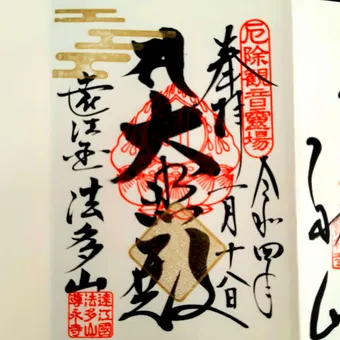 厄除観音靈場
奉拝
令和四年
一月十八日
大悲殿
遠江国 法多山
遠江國
法多山
尊永寺